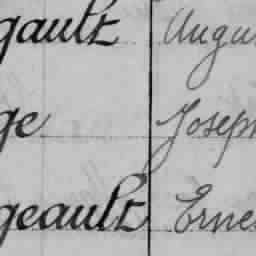 gault Augu
ge Joseph
geault Erne